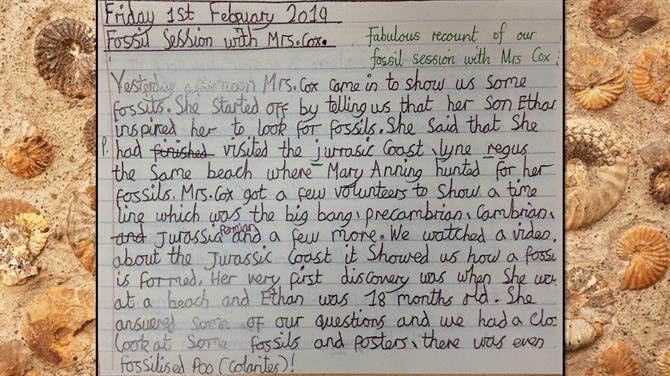 Friday 1st February 2019
Fossil Session with Mrs. Cox.
Fabulous recount of our
fossil session with Mrs Cox!
Yesterday afternoon Mrs. Cox came in to show us some
fossils. She started off by telling us that her son Ethan
inspired her to look for fossils. She said that she
P. had finished visited the jurrasic Coast, lyne regus
the same beach where Mary Anning hunted for her
fossils. Mrs. Cox got a few volunteers to show a time
line which was the big bang, precambrian, Cambrian,
and Jurassic permian and a few more. We watched a video
about the Jurassic Coast it showed us how a fossil
is formed. Her very first discovery was when she wa
at a beach and Ethan was 18 months old. She
answered some of our questions and we had a clo
look at some fossils and posters, there was even
fossilised Poo (Colarites)!